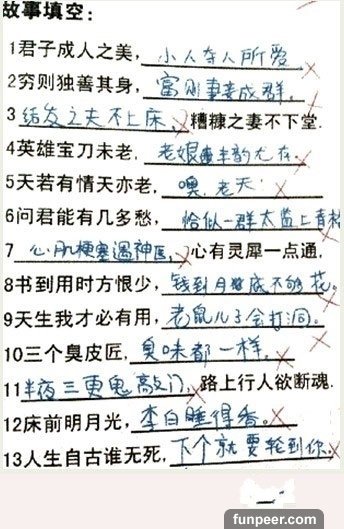 故事填空：
1君子成人之美，小人夺人所爱
2穷则独善其身，富则妻妾成群。
3结发之夫不上床，糟糠之妻不下堂.
4英雄宝刀未老，老娘丰韵尤在.
5天若有情天亦老，噢，老天
6问君能有几多愁，恰似一群太监上青楼
7 心肌梗塞遇神医，心有灵犀一点通.
8书到用时方恨少，钱到月底不够花。
9天生我才必有用，老鼠儿子会打洞.
10三个臭皮匠，臭味都一样。
11半夜三更鬼敲门，路上行人欲断魂.
12床前明月光，李白睡得香。
13人生自古谁无死，下个就要轮到你.
funpeer.com